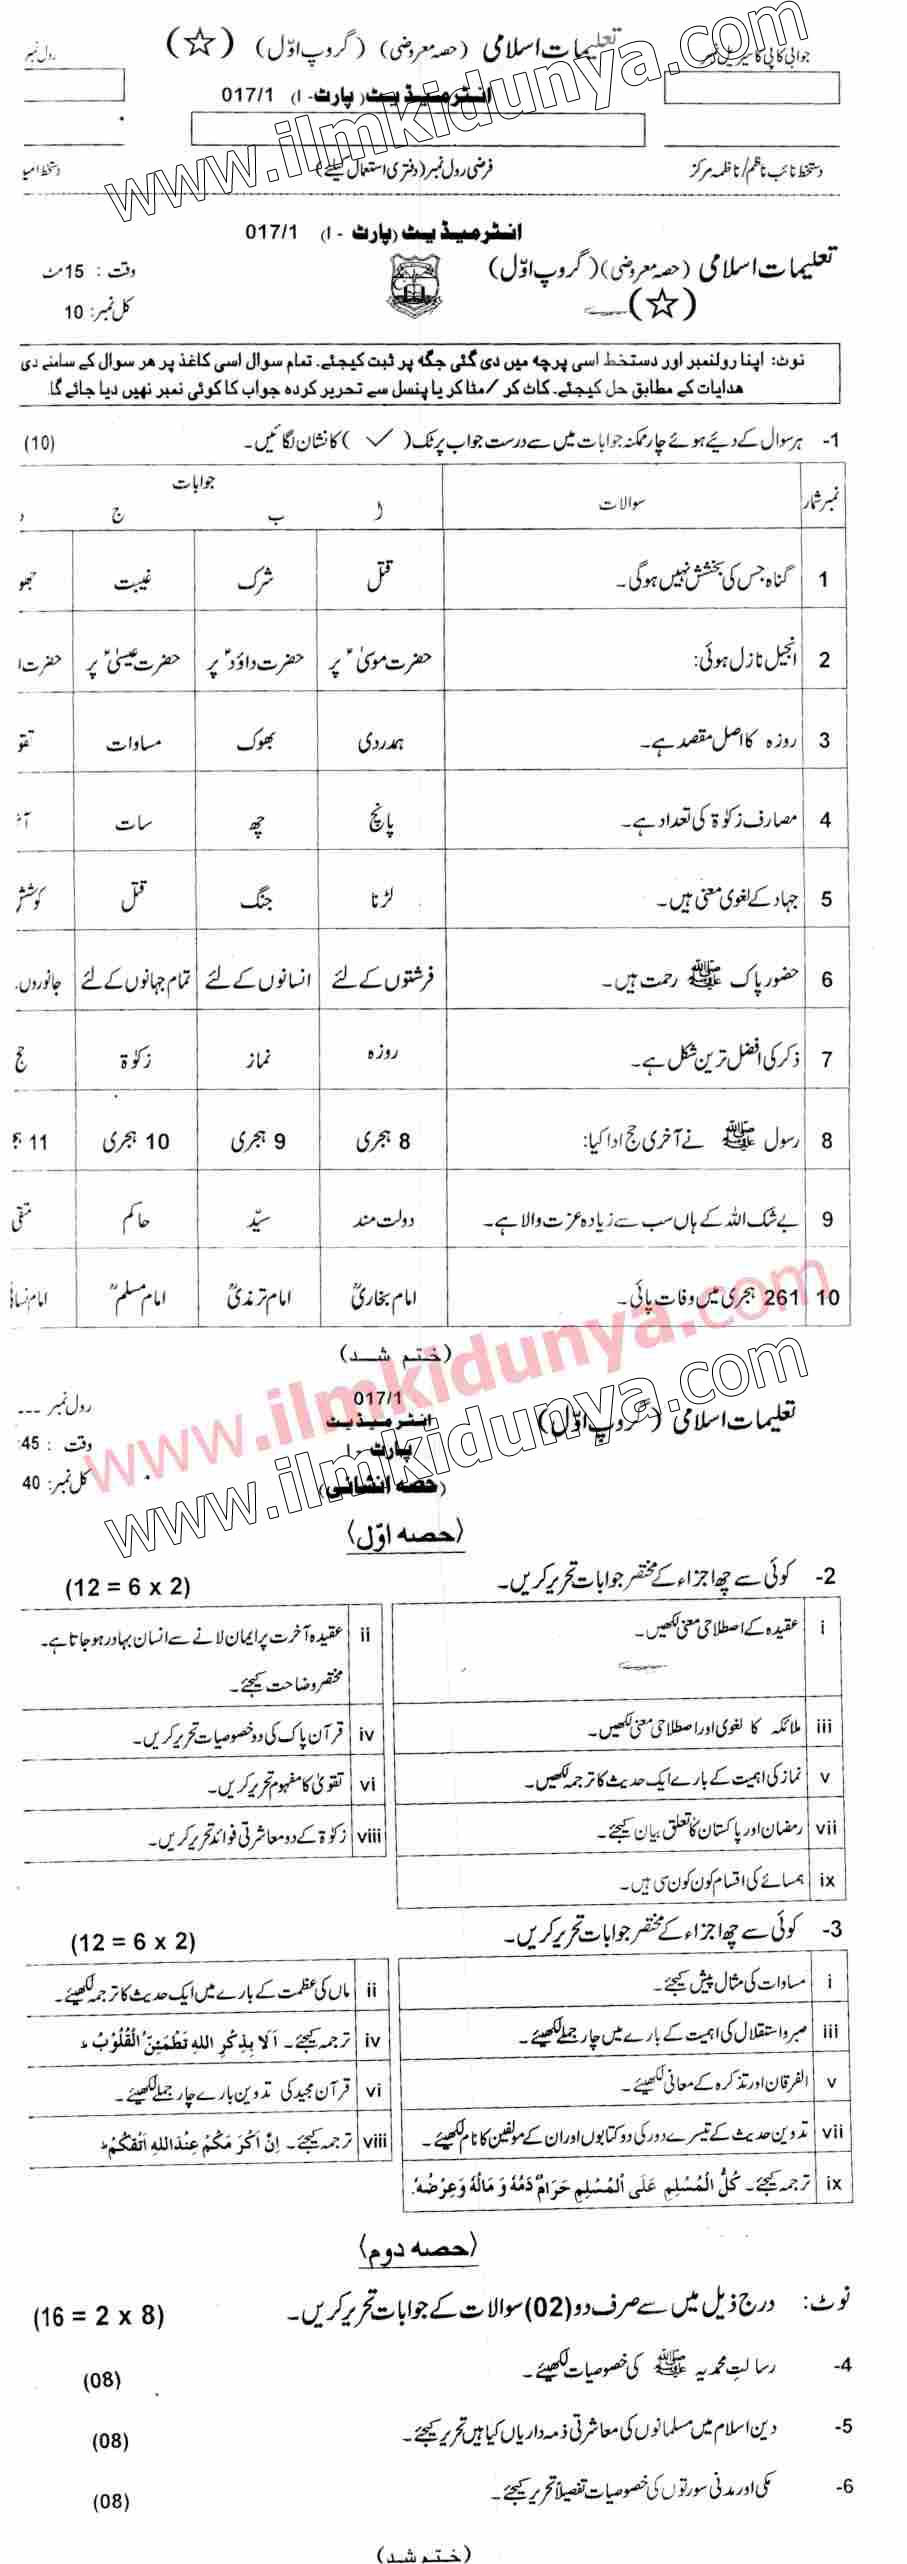 جوابی کاپی کا سیریل نمبر تعلیمات اسلامی (حصہ معروضی) (گروپ اوّل) (☆) رول نمبر
انٹرمیڈیٹ (پارٹ - I) 017/1
دستخط نائب ناظم/ناظمہ مرکز فرضی رول نمبر (دفتری استعمال کیلئے) دستخط امید
www.ilmkidunya.com
انٹرمیڈیٹ (پارٹ - I) 017/1
تعلیمات اسلامی (حصہ معروضی) (گروپ اوّل) وقت : 15 منٹ
(☆) کل نمبر: 10
نوٹ: اپنا رولنمبر اور دستخط اسی پرچہ میں دی گئی جگہ پر ثبت کیجئے۔ تمام سوال اسی کاغذ پر ہر سوال کے سامنے دی
ہدایات کے مطابق حل کیجئے۔ کاٹ کر /مٹا کر یا پنسل سے تحریر کردہ جواب کا کوئی نمبر نہیں دیا جائے گا۔
1- ہر سوال کے دئیے ہوئے چار ممکنہ جوابات میں سے درست جواب پر ٹک (✓) کا نشان لگائیں۔ (10)
نمبر شمار سوالات جوابات
ا ب ج د
1 گناہ جس کی بخشش نہیں ہوگی۔ قتل شرک غیبت جھو
2 انجیل نازل ہوئی: حضرت موسیٰؑ پر حضرت داؤدؑ پر حضرت عیسیٰؑ پر حضرت ا
3 روزہ کا اصل مقصد ہے۔ ہمدردی بھوک مساوات تقو
4 مصارف زکوٰۃ کی تعداد ہے۔ پانچ چھ سات آٹھ
5 جہاد کے لغوی معنی ہیں۔ لڑنا جنگ قتل کوشش
6 حضور پاک ﷺ رحمت ہیں۔ فرشتوں کے لئے انسانوں کے لئے تمام جہانوں کے لئے جانوروں
7 ذکر کی افضل ترین شکل ہے۔ روزہ نماز زکوٰۃ حج
8 رسول ﷺ نے آخری حج ادا کیا: 8 ہجری 9 ہجری 10 ہجری 11 ہج
9 بے شک اللہ کے ہاں سب سے زیادہ عزت والا ہے۔ دولت مند سیّد حاکم متقی
10 261 ہجری میں وفات پائی۔ امام بخاریؒ امام ترمذیؒ امام مسلمؒ امام نسائی
(ختم شد)
www.ilmkidunya.com
تعلیمات اسلامی (گروپ اوّل) 017/1 رول نمبر ---
انٹرمیڈیٹ وقت : 45:
پارٹ - I کل نمبر: 40
(حصہ انشائی)
www.ilmkidunya.com
(حصہ اوّل)
2- کوئی سے چھ اجزاء کے مختصر جوابات تحریر کریں۔ (12 = 6 x 2)
i عقیدہ کے اصطلاحی معنی لکھیں۔ ii عقیدہ آخرت پر ایمان لانے سے انسان بہادر ہو جاتا ہے۔
مختصر وضاحت کیجئے۔
iii ملائکہ کا لغوی اور اصطلاحی معنی لکھیں۔ iv قرآن پاک کی دو خصوصیات تحریر کریں۔
v نماز کی اہمیت کے بارے ایک حدیث کا ترجمہ لکھیں۔ vi تقویٰ کا مفہوم تحریر کریں۔
vii رمضان اور پاکستان کا تعلق بیان کیجئے۔ viii زکوٰۃ کے دو معاشرتی فوائد تحریر کریں۔
ix ہمسائے کی اقسام کون کون سی ہیں۔
3- کوئی سے چھ اجزاء کے مختصر جوابات تحریر کریں۔ (12 = 6 x 2)
i مساوات کی مثال پیش کیجئے۔ ii ماں کی عظمت کے بارے میں ایک حدیث کا ترجمہ لکھیئے۔
iii صبر و استقلال کی اہمیت کے بارے میں چار جملے لکھیئے۔ iv ترجمہ کیجئے۔ اَلَا بِذِکْرِ اللهِ تَطْمَئِنُّ الْقُلُوْبُ ط
v الفرقان اور تذکرہ کے معانی لکھیئے۔ vi قرآن مجید کی تدوین بارے چار جملے لکھیئے۔
vii تدوین حدیث کے تیسرے دور کی دو کتابوں اور ان کے مولفین کا نام لکھیئے۔ viii ترجمہ کیجئے۔ اِنَّ اَکْرَمَکُمْ عِنْدَاللهِ اَتْقٰکُمْ ط
ix ترجمہ کیجئے۔ کُلُّ الْمُسْلِمِ عَلَی الْمُسْلِمِ حَرَامٌ دَمُهٗ وَ مَالُهٗ وَ عِرْضُهٗ۔
(حصہ دوم)
نوٹ: درج ذیل میں سے صرف دو (02) سوالات کے جوابات تحریر کریں۔ (16 = 2 x 8)
4- رسالتِ محمدیہ ﷺ کی خصوصیات لکھیئے۔ (08)
5- دین اسلام میں مسلمانوں کی معاشرتی ذمہ داریاں کیا ہیں تحریر کیجئے۔ (08)
6- مکی اور مدنی سورتوں کی خصوصیات تفصیلاً تحریر کیجئے۔ (08)
(ختم شد)